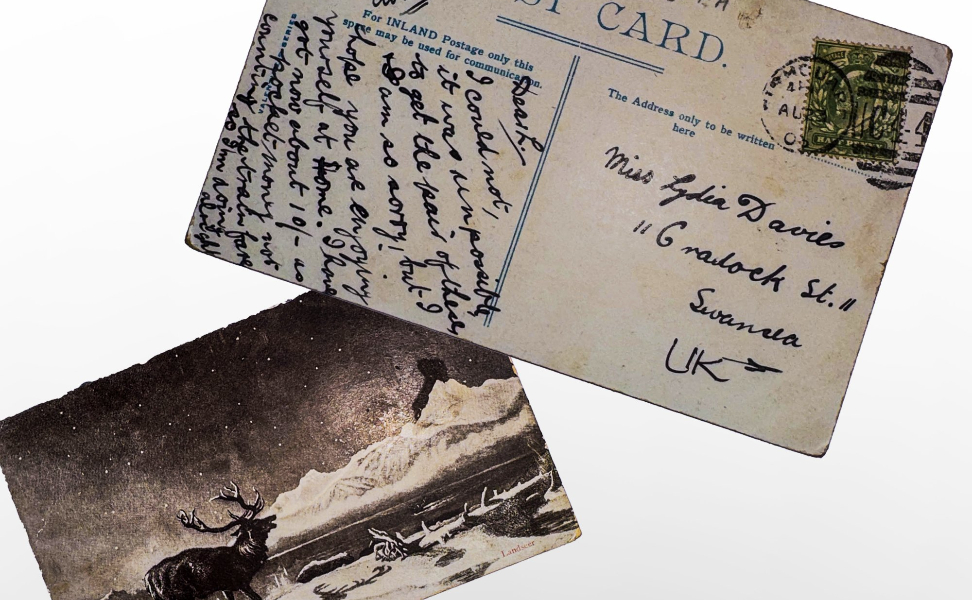 POST CARD.
For INLAND Postage only this
space may be used for communication.
The Address only to be written
here
Miss Lydia Davies
"11 Cradock St."
Swansea
UK
Dear L,
I could not,
it was impossible
to get the pair of these
I am so sorry! but I
hope you are enjoying
yourself at Home. I have
got now about 10/- as
pocket-money not
counting the train fare
so I'm doing
alright
AU
Landseer